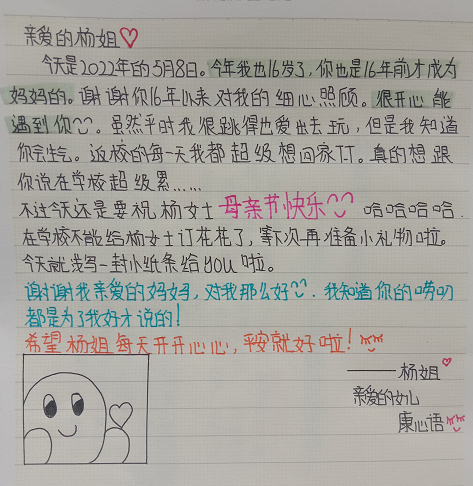 亲爱的杨姐♡
今天是2022年的5月8日。今年我也16岁了,你也是16年前才成为
妈妈的。谢谢你16年以来对我的细心照顾。很开心能
遇到你。虽然平时我很跳得也爱出去玩,但是我知道
你会生气。返校的每一天我都超级想回家T.T。真的想跟
你说在学校超级累......
不过今天还是要祝杨女士母亲节快乐 哈哈哈哈.
在学校不能给杨女士订花花了,等下次再准备小礼物啦。
今天就写一封小纸条给you啦。
谢谢我亲爱的妈妈,对我那么好.我知道你的唠叨
都是为了我好才说的!
希望杨姐每天开开心心,平安就好啦!
——杨姐♡
亲爱的女儿
康心语